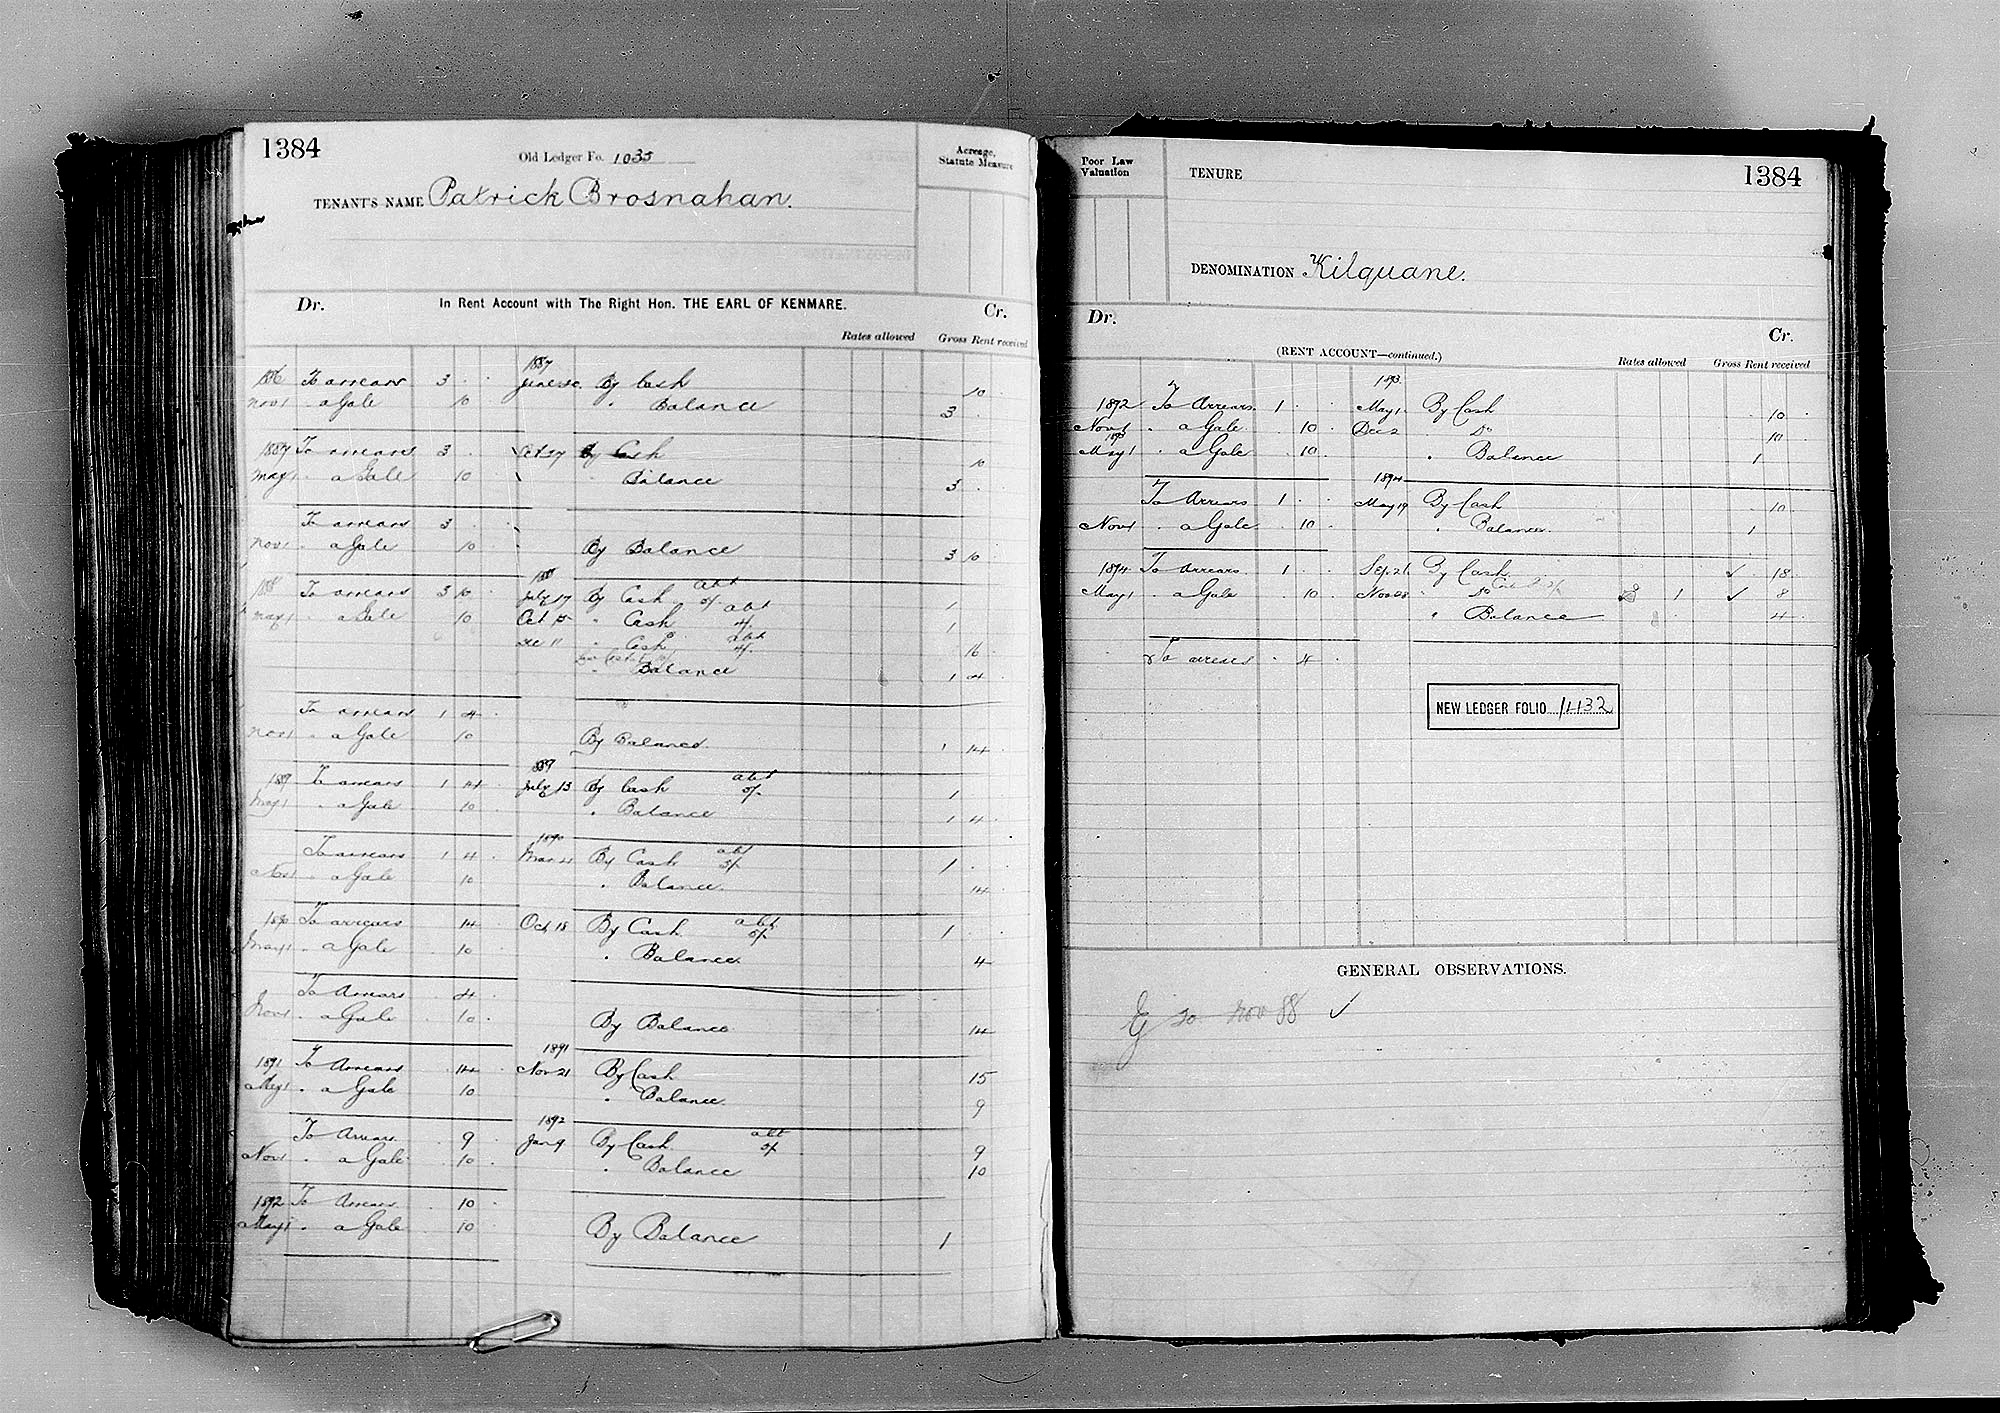 1384
Old Ledger Fo. 1035
Acreage, Statute Measure
TENANT'S NAME Patrick Brosnahan.
Dr. In Rent Account with The Right Hon. THE EARL OF KENMARE. Cr.
Rates allowed Gross Rent received
1887
1886 To arrears 3 June By Cash 10
Nov 1 " a Gale 10 " Balance 3
1887 To arrears 3 Oct 27 By Cash 10
May 1 " a Gale 10 " Balance 3
To arrears 3
Nov 1 " a Gale 10 By Balance 3 10
1888 abt
1888 To arrears 3 10 July 17 By Cash 5/- 1
abt
May 1 " a Gale 10 Oct 15 " Cash 4/- 1
abt
Dec 11 " Cash 4/- 16
" Balance 1 4
To arrears 1 4
Nov 1 " a Gale 10 By Balance 1 14
1889 abt
1889 To arrears 1 14 July 13 By Cash 5/- 1
May 1 " a Gale 10 " Balance 1 4
1890 abt
To arrears 1 4 Mar 21 By Cash 5/- 1
Nov 1 " a Gale 10 " Balance 14
abt
1890 To arrears 14 Oct 18 By Cash 5/- 1
May 1 " a Gale 10 " Balance 4
To Arrears 4
Nov 1 " a Gale 10 By Balance 14
1891
1891 To Arrears 14 Nov 21 By Cash 15
May 1 " a Gale 10 " Balance 9
1892 abt
To Arrears 9 Jan 9 By Cash 5/- 9
Nov 1 " a Gale 10 " Balance 10
1892 To Arrears 10
May 1 " a Gale 10 By Balance 1
Poor Law Valuation
TENURE
1384
DENOMINATION Kilquane.
Dr. Cr.
(RENT ACCOUNT—continued.)
Rates allowed Gross Rent received
1893
1892 To Arrears 1 May 1 By Cash 10
Nov 1 " a Gale 10 Dec 2 " Do 10
1893
May 1 " a Gale 10 " Balance 1
1894
To Arrears 1 May 19 By Cash 10
Nov 1 " a Gale 10 " Balance 1
1894 To Arrears 1 Sep. 21 By Cash ✓ 18
May 1 " a Gale 10 Nov 28 " Do 2 1 ✓ 8
" Balance 4
To arrears 4
NEW LEDGER FOLIO 1132
GENERAL OBSERVATIONS.
to Nov 88 ✓